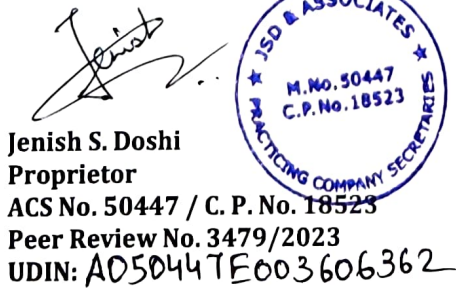 Jenish
JSD & ASSOCIATES
M.No.50447
C.P.No.18523
PRACTICING COMPANY SECRETARIES
Jenish S. Doshi
Proprietor
ACS No. 50447 / C. P. No. 18523
Peer Review No. 3479/2023
UDIN: A050447E003606362